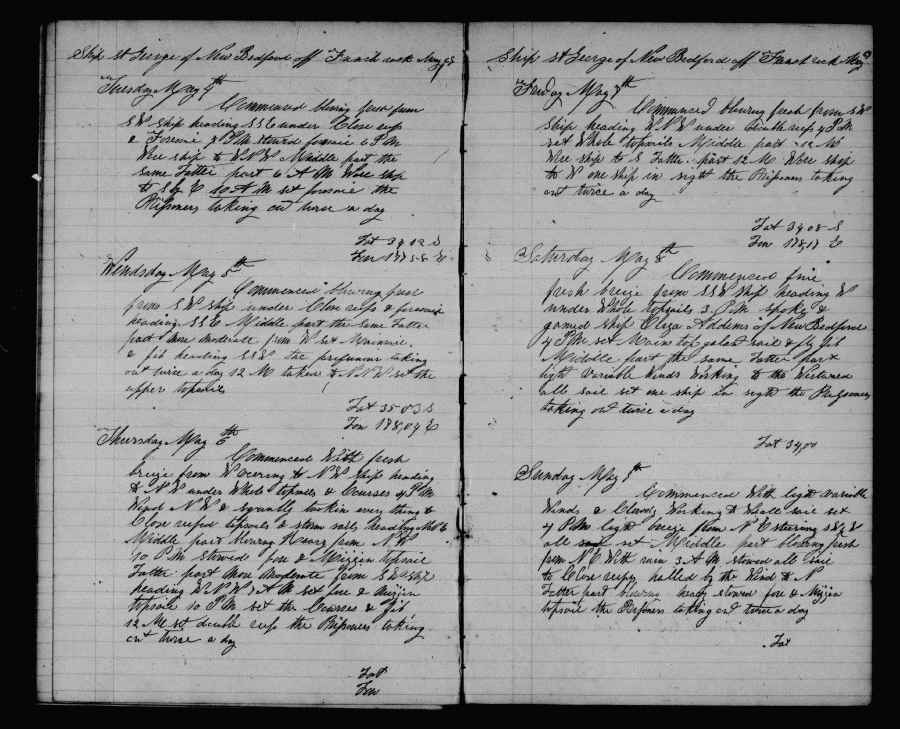 Ship St George of New Bedford off French rock May
Tuesday May 4th
Commenced bloing fresh from
SW Ship heading SSE under Close reefs
& Foresail 4 PM stowed foresail 6 PM
Wore ship to WNW Middle part the
same Latter part 6 AM Wore ship
to S by E 10 AM set foresail the
Prisoners taking out twice a day
Lat 34 12 S
Lon 178 58 E
Wendsday May 5th
Commenced blowing fresh
from SW ship under Close reefs & foresail
heading SSE Middle part the same Latter
part more moderate from W set Mainsail
& jib heading SSW the prisoners taking
out twice a day 12 M tacked to NNW set the
upper topsails
Lat 35 03 S
Lon 178,09 E
Thursday May 6th
Commenced With fresh
breize from W veering to NW Ship heading
to NW under Whole topsails & Courses 4 PM
Wind NW & squally tookin every thing to
Close reefed topsails & storm sails heading
Middle part blowing Heavy from NW
10 PM stowed fore & Mizzin topsail
Latter part More Moderate from SW ship
heading WNW AM set fore & Mizzin
topsail 10 PM set the Courses & Jib
12 M set double reefs the Prisoners taking
out twice a day
Lat
Lon
Ship St George of New Bedford off French rock May
Friday May 7th
Commenced blowing fresh from SW
ship heading WNW under double reefs 4 PM
set Whole topsails Middle part 12 M
Wore ship to S Latter part 12 M Wore ship
to W one ship in sight the Prisoners taking
out twice a day
Lat 34 08 S
Lon 178,17 E
Saturday May 8th
Commenced fine
fresh breize from SSW ship heading W
under Whole topsails 3 PM spoke &
gamed ship Eliza Addams of New Bedford
4 PM set Main top galant sail & fly Jib
Middle part the same Latter part
light variable Winds Working to the Westward
all sail set one ship in sight the Prisoners
taking out twice a day
Lat 34,00
Sunday May 9th
Commenced With light variable
Winds & Cloudy Working to W all sail set
4 PM light breize from NE stering
all sail set Middle part blowing fresh
from NE With rain 3 AM stowed all sail
to Close reefs halled by the Wind to N
Latter part blowing heavy stowed fore & Mizzin
topsail the Prisoners taking out twice a day
Lat